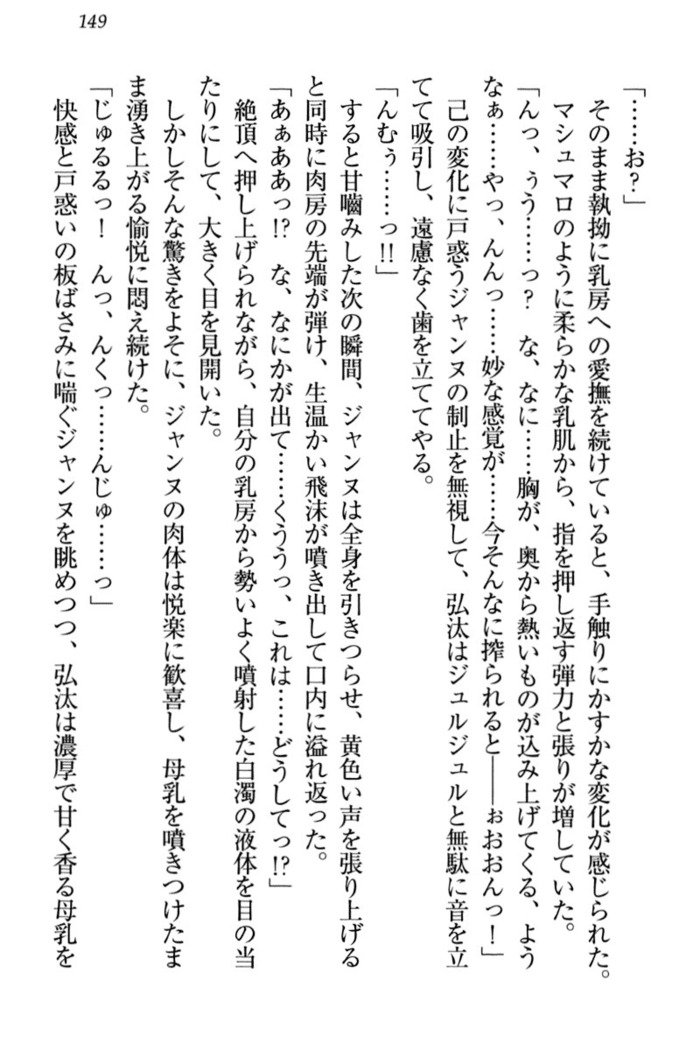 149
「……お？」
　そのまま執拗に乳房への愛撫を続けていると、手触りにかすかな変化が感じられた。
　マシュマロのように柔らかな乳肌から、指を押し返す弾力と張りが増していた。
「んっ、ぅう……っ？　な、なに……胸が、奥から熱いものが込み上げてくる、よう
なぁ……やっ、んんっ……妙な感覚が……今そんなに搾られると――ぉおおんっ！」
　己の変化に戸惑うジャンヌの制止を無視して、弘汰はジュルジュルと無駄に音を立
てて吸引し、遠慮なく歯を立ててやる。
「んむぅ……っ!!」
　すると甘嚙みした次の瞬間、ジャンヌは全身を引きつらせ、黄色い声を張り上げる
と同時に肉房の先端が弾け、生温かい飛沫が噴き出して口内に溢れ返った。
「あぁああっ!?　な、なにかが出て……くううっ、これは……どうしてっ!?」
　絶頂へ押し上げられながら、自分の乳房から勢いよく噴射した白濁の液体を目の当
たりにして、大きく目を見開いた。
　しかしそんな驚きをよそに、ジャンヌの肉体は悦楽に歓喜し、母乳を噴きつけたま
ま湧き上がる愉悦に悶え続けた。
「じゅるるっ！　んっ、んくっ……んじゅ……っ」
　快感と戸惑いの板ばさみに喘ぐジャンヌを眺めつつ、弘汰は濃厚で甘く香る母乳を